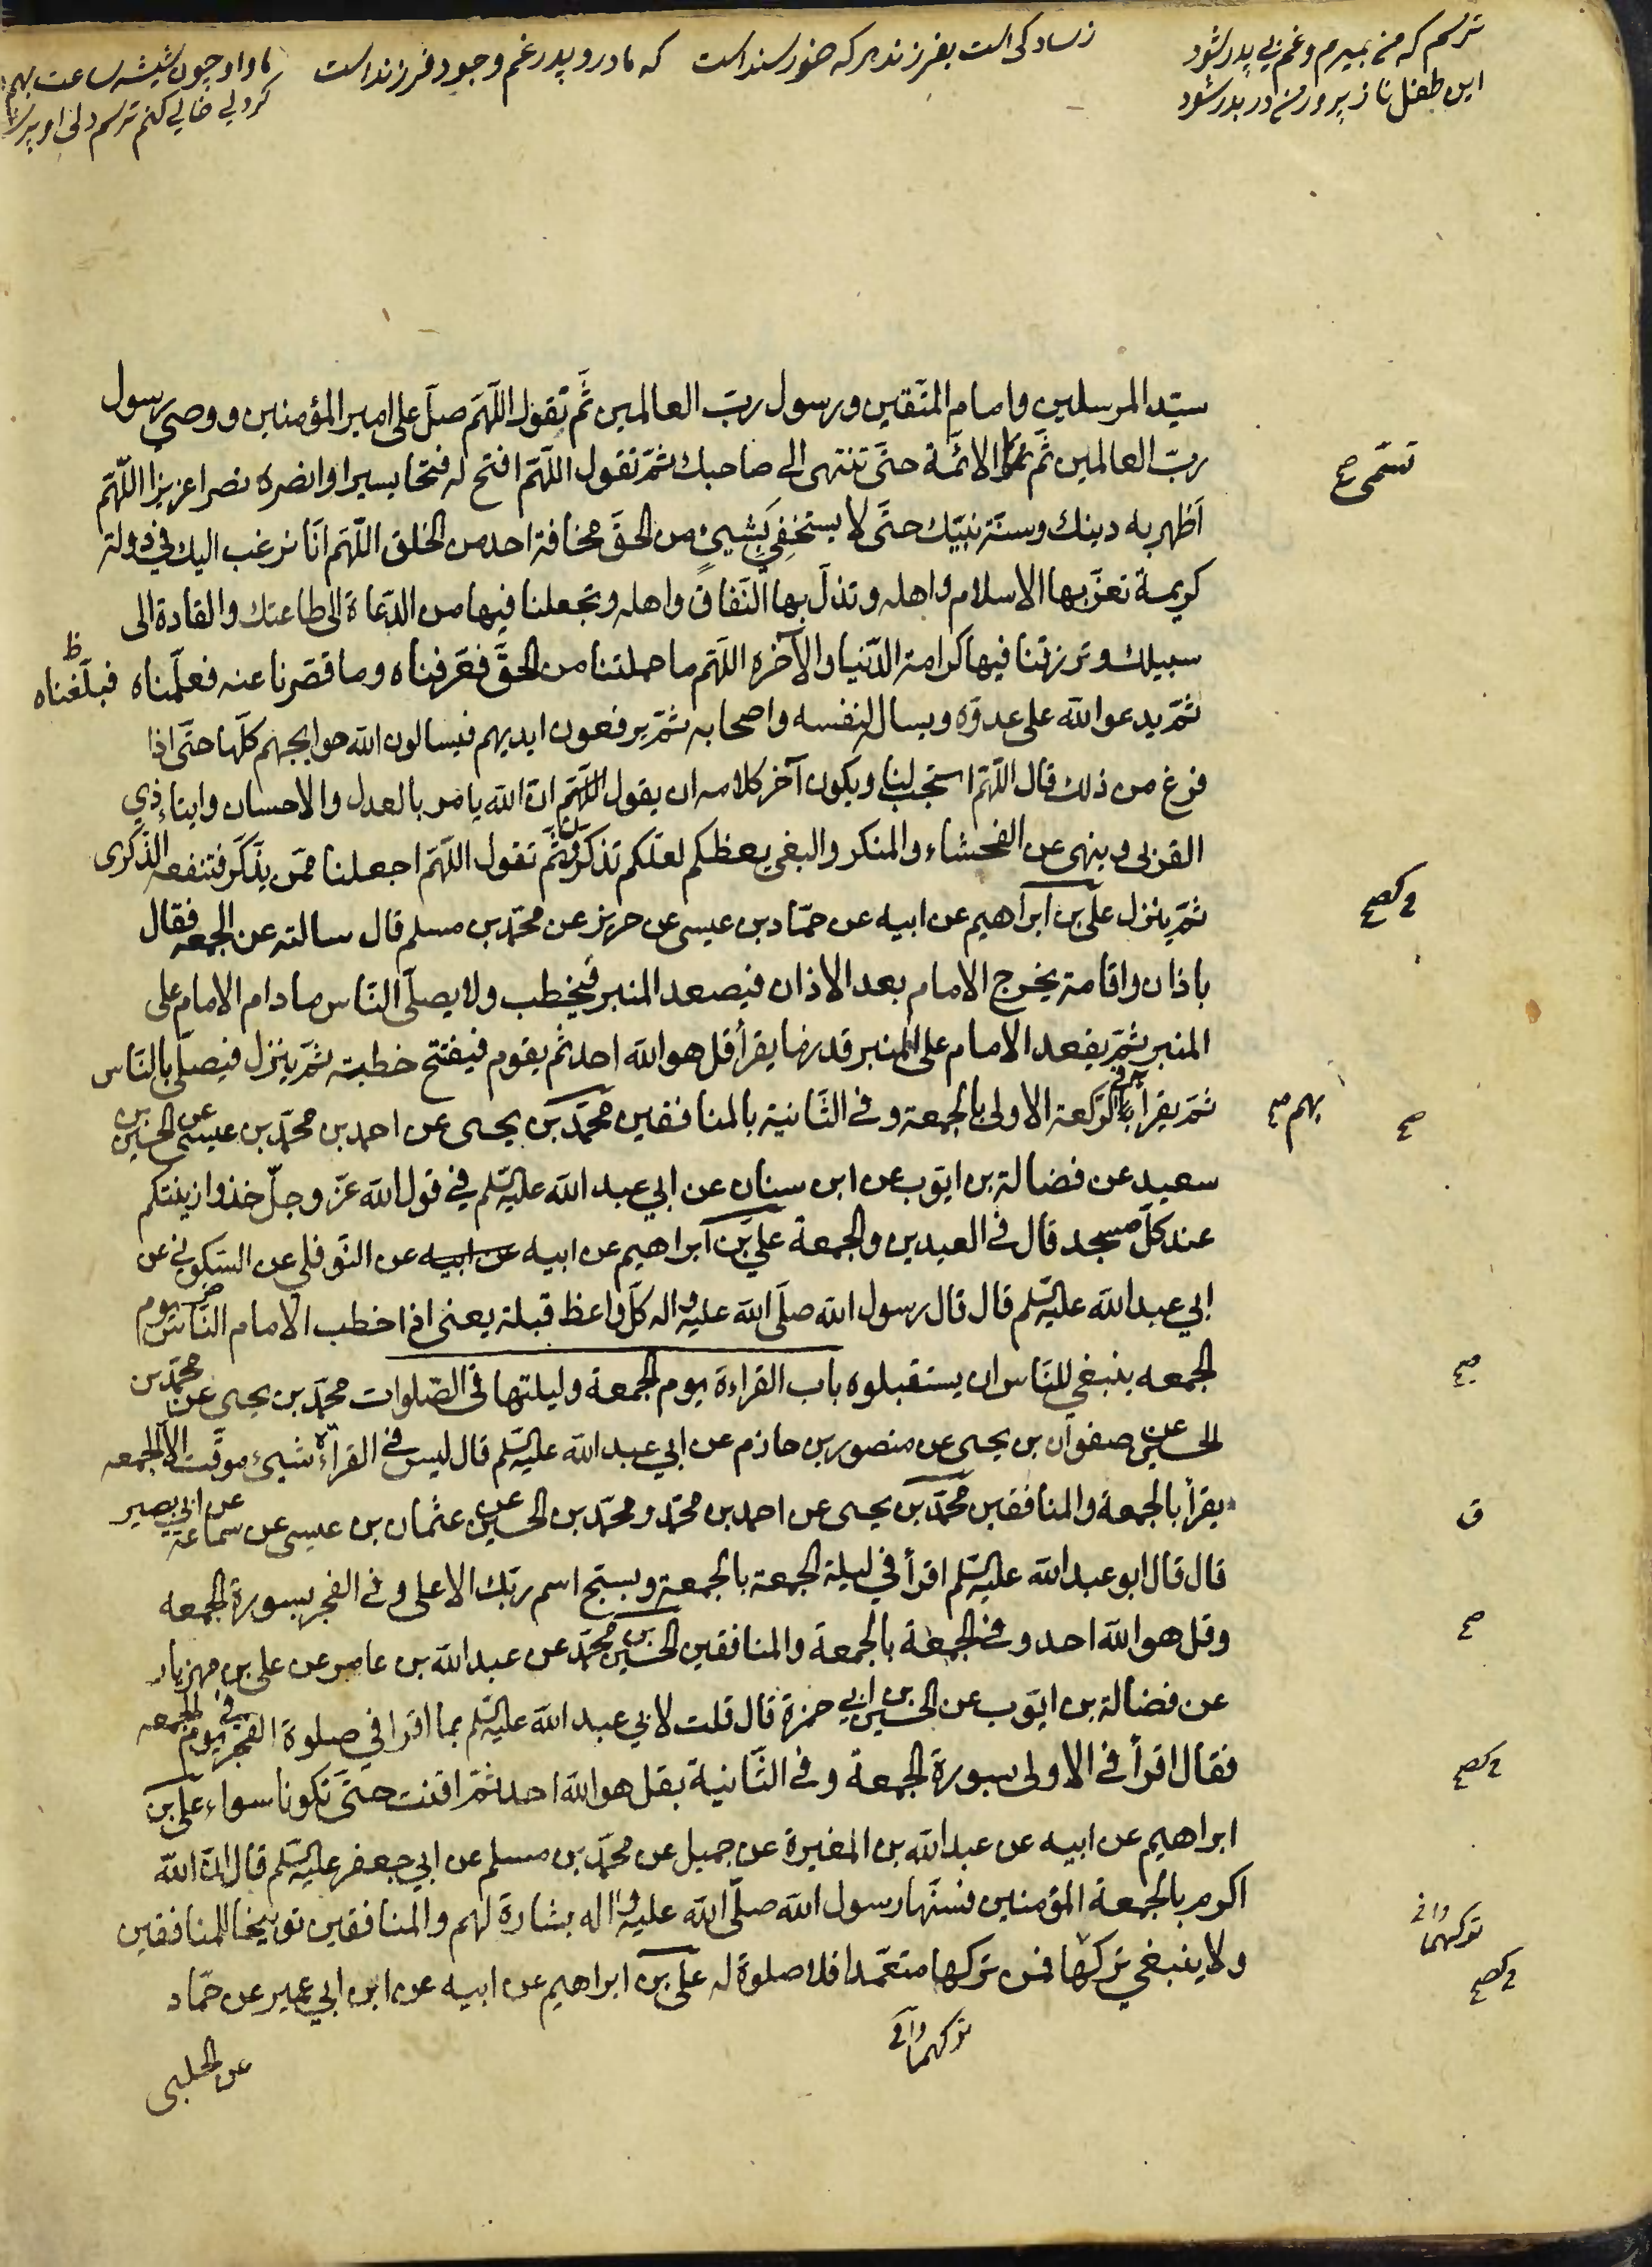 ترسم که من بمیرم و غم بی پدر شود
این طفل ناز پرور من در بدر شود
ز سادگی است بفرزند هر که خورسند است
که مادر و پدر غم وجود فرزند است
ما و او چون شیشه ساعت بهم
گر دلی خالی کنم ترسم دل او پر شود
سيّد المرسلين وامام المتّقين ورسول ربّ العالمين ثمّ تقول اللّهمّ صلّ على امير المؤمنين ووصى رسول
ربّ العالمين ثمّ الائمّة حتّى تنتهى الى صاحبك ثمّ تقول اللّهمّ افتح له فتحا يسيرا وانصره نصرا عزيزا اللّهمّ
تسمى صح
اظهر به دينك وسنّة نبيّك حتّى لا يستخفي بشيئ من الحقّ مخافة احد من الخلق اللّهمّ انّا نرغب اليك في دولة
كريمة تعزّ بها الاسلام واهله وتذلّ بها النّفاق واهله وتجعلنا فيها من الدّعاة الى طاعتك والقادة الى
سبيلك وترزقنا فيها كرامة الدّنيا والآخره اللّهمّ ما حملتنا من الحقّ فعرفناه وما قصرنا عنه فعلّمناه فبلّغناه ظ
ثمّ يدعو الله على عدوّه ويسال لنفسه واصحابه ثمّ يرفعون ايديهم فيسالون الله حوايجهم كلّها حتّى اذا
فرغ من ذلك قال اللّهمّ استجب لنا ويكون آخر كلامه ان يقول انّ الله يامر بالعدل والاحسان وايتاء ذي
القربى وينهى عن الفحشاء والمنكر والبغي يعظكم لعلّكم تذكّرون ثمّ تقول اللّهمّ اجعلنا ممّن يذّكّر فتنفعه الذّكرى
ثمّ ينزل علىّ بن ابراهيم عن ابيه عن حمّاد بن عيسى عن حريز عن محمّد بن مسلم قال سالته عن الجمعه فقال
باذان واقامة يخرج الامام بعد الاذان فيصعد المنبر فيخطب ولا يصلّى النّاس ما دام الامام على
المنبر ثمّ يقعد الامام على المنبر قدر ما يقرأ قل هو الله احد ثمّ يقوم فيفتتح خطبته ثمّ ينزل فيصلّى بالنّاس
ثمّ يقرأ بهم في الرّكعة الاولى بالجمعة وفى الثّانية بالمنافقين محمّد بن يحيى عن احمد بن محمّد بن عيسى عن الحسين بن
بهم صح
صح
سعيد عن فضالة بن ايّوب عن ابن سنان عن ابي عبد الله عليه السّلم في قول الله عزّ وجلّ خذوا زينتكم
عند كلّ مسجد قال في العيدين والجمعة علىّ بن ابراهيم عن ابيه عن ابيه عن النّوفلي عن السّكوني عن
ابي عبد الله عليه السّلم قال قال رسول الله صلّى الله عليه واله كلّ واعظ قبلة يعنى اذا خطب الامام النّاس يوم
الجمعه ينبغي للنّاس ان يستقبلوه باب القراءة يوم الجمعة وليلتها في الصّلوات محمّد بن يحيى عن محمّد بن
الحسين عن صفوان بن يحيى عن منصور بن حازم عن ابي عبد الله عليه السّلم قال ليس في القراءة شيئ موقّت الّا الجمعه
يقرأ بالجمعة والمنافقين محمّد بن يحيى عن احمد بن محمّد ومحمّد بن الحسين عن عثمان بن عيسى عن سماعة عن ابي بصير
ق
قال قال ابو عبد الله عليه السّلم اقرأ في ليلة الجمعة بالجمعة وسبّح اسم ربّك الاعلى وفي الفجر بسورة الجمعه
وقل هو الله احد وفي الجمعة بالجمعة والمنافقين الحسين بن محمّد عن عبد الله بن عامر عن على بن مهزيار
صح
عن فضالة بن ايّوب عن الحسين بن ابي حمزة قال قلت لابي عبد الله عليه السّلم بما اقرا في صلوة الفجر في يوم الجمعه
فقال اقرأ في الاولى بسورة الجمعة وفي الثّانية بقل هو الله احد ثمّ اقنت حتّى تكونا سواء علىّ بن
ابراهيم عن ابيه عن عبد الله بن المغيرة عن جميل عن محمّد بن مسلم عن ابي جعفر عليه السّلم قال انّ الله
اكرم بالجمعة المؤمنين فسنّها رسول الله صلّى الله عليه واله بشارة لهم والمنافقين توبيخا للمنافقين
ولا ينبغي تركها فمن تركها متعمّدا فلا صلوة له علىّ بن ابراهيم عن ابيه عن ابن ابي عمير عن حمّاد
تركهما وافي
تركهما وافي
عن الحلبى